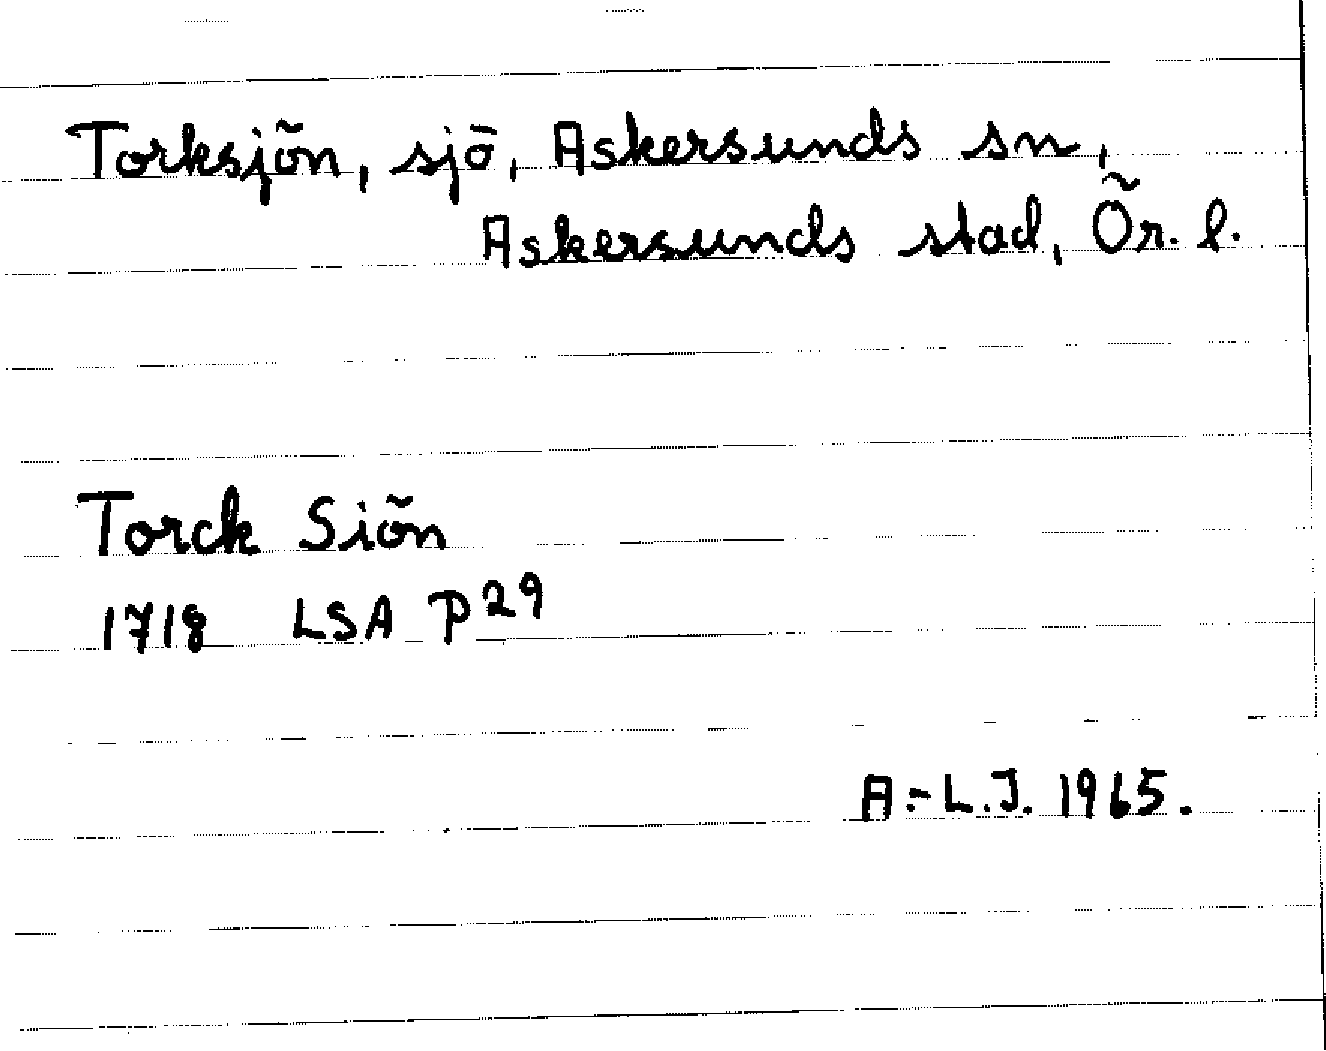 Torksjön, sjö, Askersunds sn,
Askersunds stad, Ör. l.
Torck Siön
1718 LSA P29
A.-L.J. 1965.